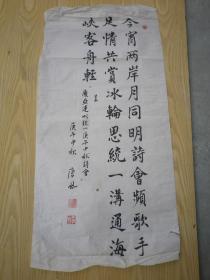 今宵兩岸月同明詩會頻歌手
足情共賞冰輪思統一溝通海
峽客舟輕
慶亞運盼統一庚午中秋詩會
庚午中秋